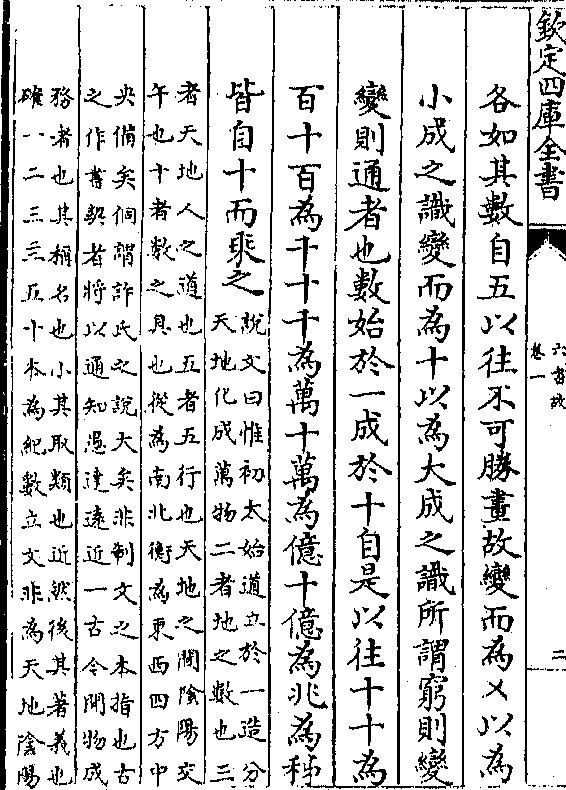 欽定四庫全書
六書故
卷一
二
各如其數自五以往不可勝畫故變而為㐅以為
小成之識變而為十以為大成之識所謂窮則變
變則通者也數始於一成於十自是以往十十為
百十百為千十千為萬十萬為億十億為兆為秭
皆自十而乘之
說文曰惟初太始道立於一造分
天地化成萬物二者地之數也三
者天地人之道也五者五行也天地之間陰陽交
午也十者數之具也從為南北衡為東西四方中
央備矣侗謂許氏之說大矣非制文之本指也古
之作書契者將以通知愚達遠近一古今開物成
務者也其稱名也小其取類也近然後其著義也
確一二三亖五十本為紀數立文非為天地陰陽